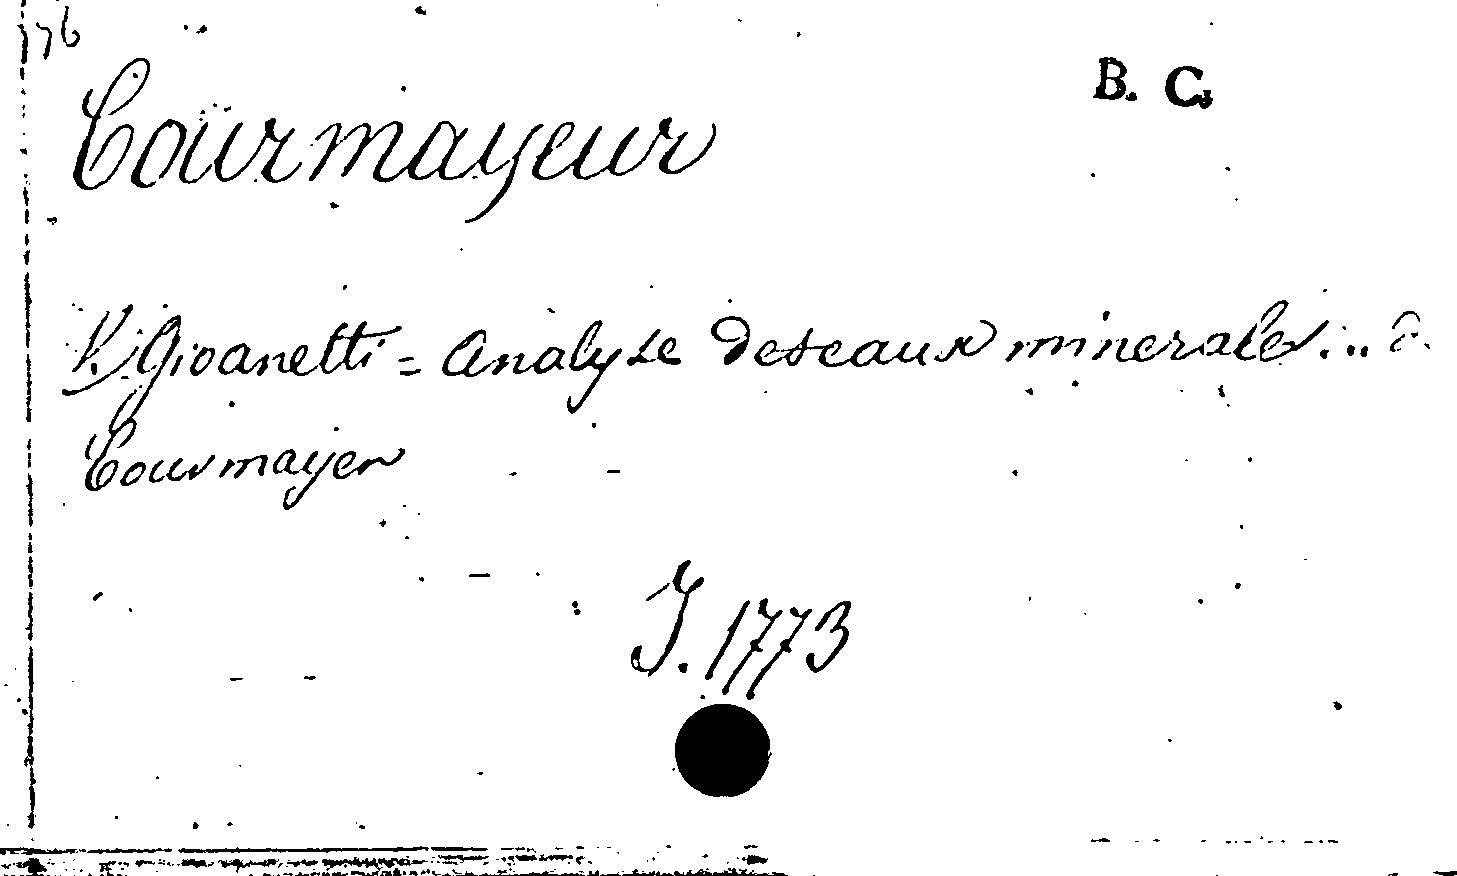 76
B. C.
Courmayeur
V. Gioanetti = Analyse des eaux minerales... d.
Courmayer
J. 1773